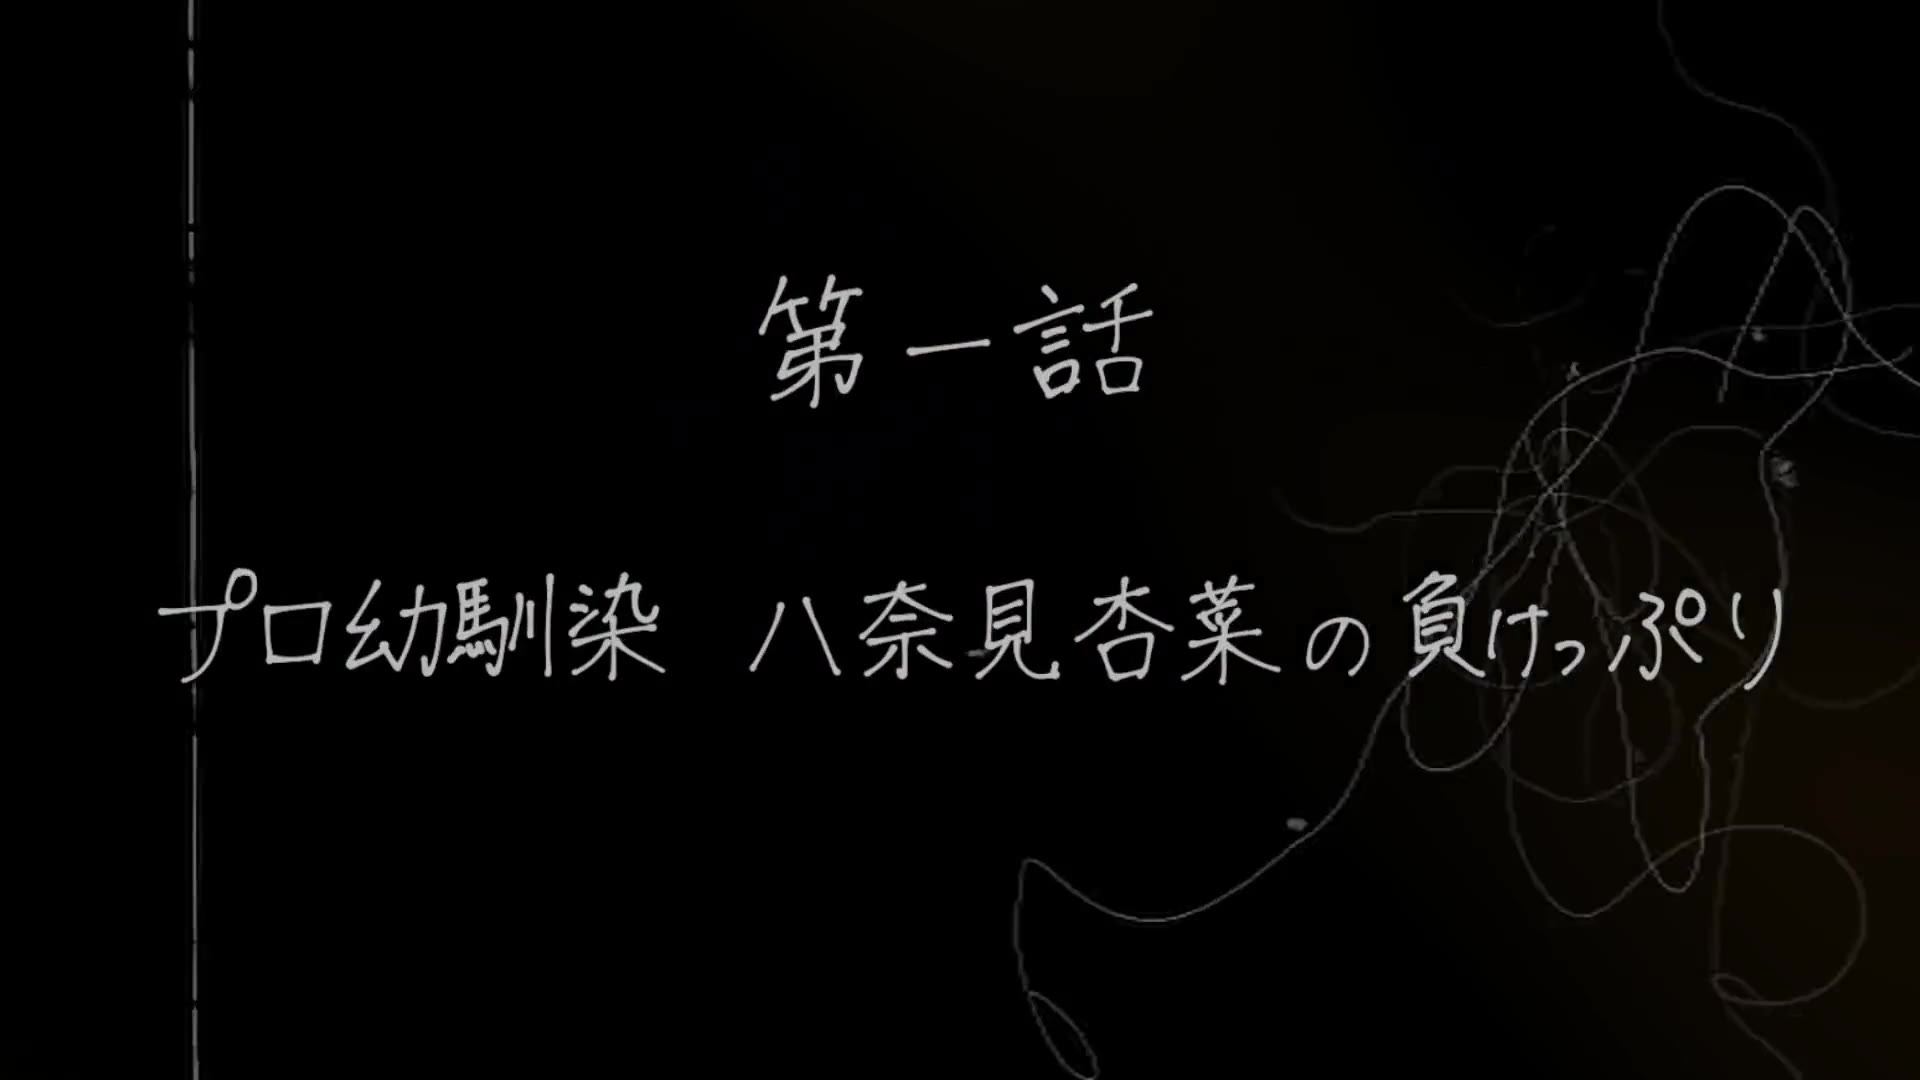 第一話
プロ幼馴染 八奈見杏菜の負けっぷり